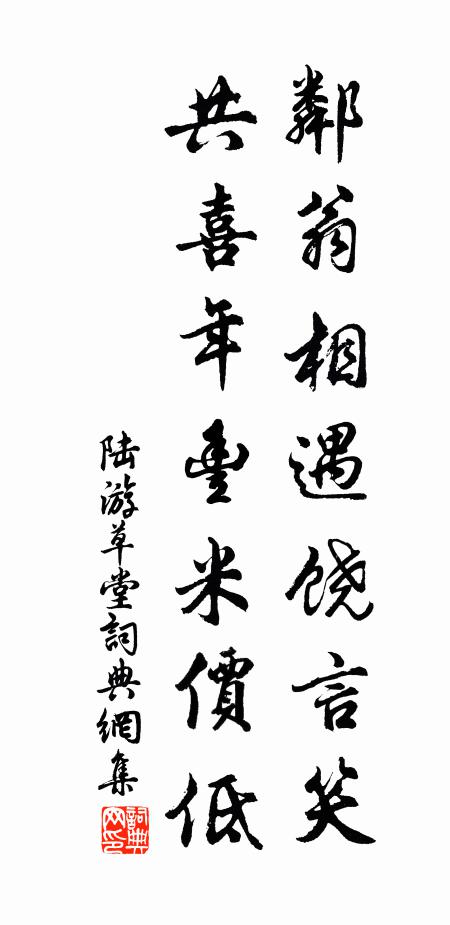 鄰翁相遇饒言笑
共喜年豐米價低
陆游草堂詞典網集
詞典网印